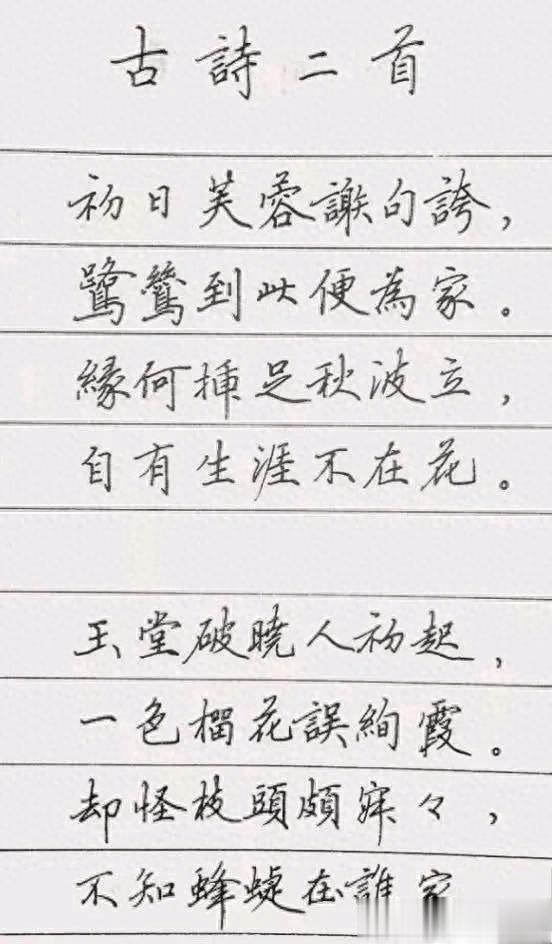 古詩二首
初日芙蓉謝句誇，
鷺鷥到此便為家。
緣何插足秋波立，
自有生涯不在花。
玉堂破曉人初起，
一色榴花誤絢霞。
却怪枝頭頗寂々，
不知蜂蝶在誰家